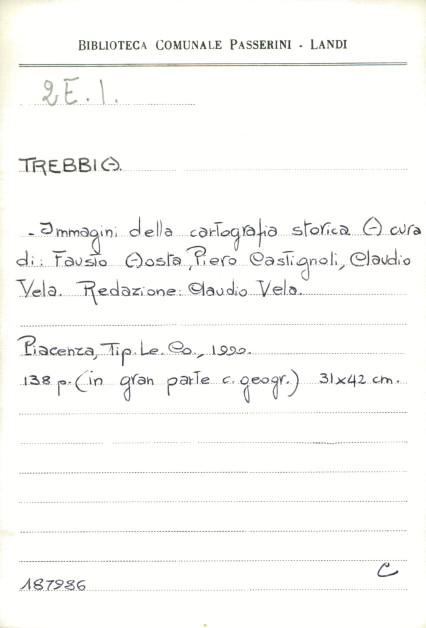 BIBLIOTECA COMUNALE PASSERINI - LANDI
2E.1.
TREBBIA.
- Immagini della cartografia storica A cura
di: Fausto Aosta, Piero Castignoli, Claudio
Vela. Redazione: Claudio Vela.
Piacenza, Tip. Le. Co., 1990.
138 p. (in gran parte c. geogr.) 31x42 cm.
C
187986